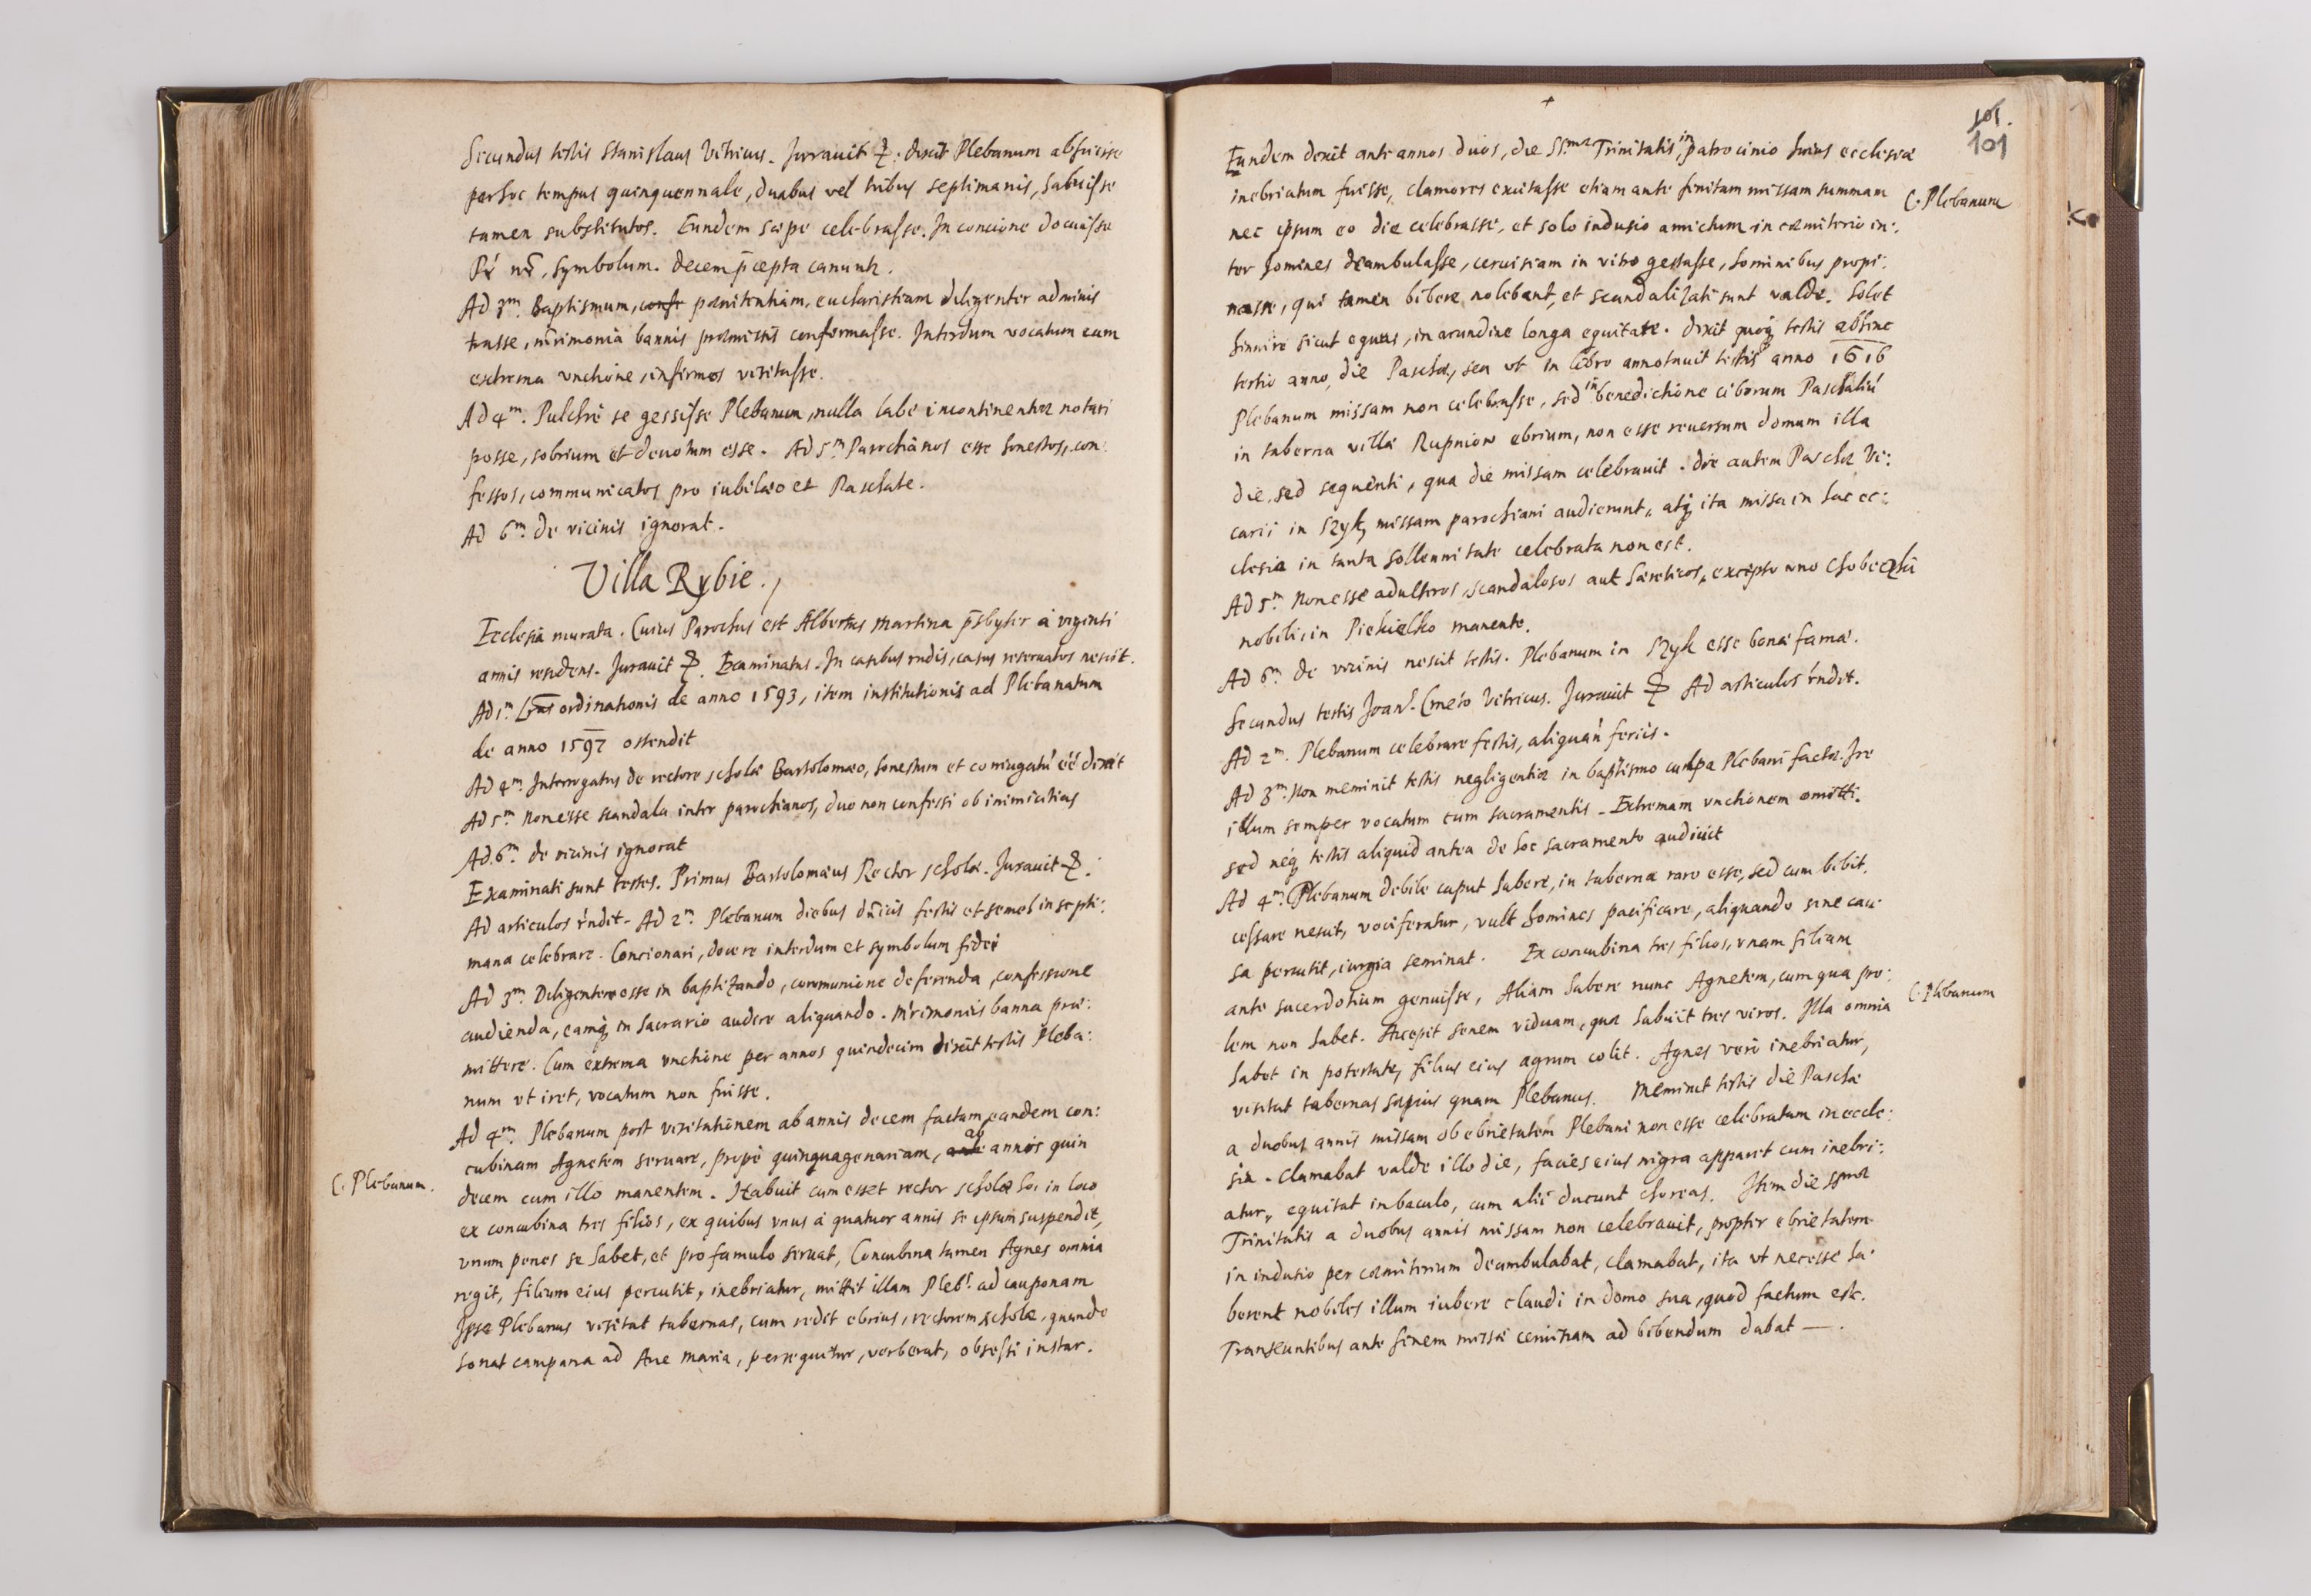 Secundus testis Stanislaus Vitricus. Jurauit ⳨: dixit Plebanum abfuisse
per hoc tempus quinquennale, duabus vel tribus septimanis, habuisse
tamen substitutos. Eundem sæpe celebrasse. In concione docuisse
Pr̃ nr̃, symbolum. decem p̄cepta canunt.
Ad 3m. Baptismum, conf pœnitentiam, eucharistiam diligenter adminis
trasse, mr̃imonia bannis præmissis confirmasse. Interdum vocatum cum
extrema vnctione, infirmos visitasse.
Ad 4m. Pulchrè se gessisse Plebanum, nulla labe incontinentiæ notari
posse, sobrium et deuotum esse. Ad 5m Parochianos esse honestos, con:
fessos, communicatos pro iubilæo et Paschate.
Ad 6m. de vicinis ignorat.
Villa Rybie.
Ecclesia murata. Cuius Parochus est Albertus Martina p̄sbyter à viginti
annis residens. Jurauit ⳨. Examinatus. In casibus rndis, casus reseruatos nesciit.
Ad 1m. Lr̃as ordinationis de anno 1593, item institutionis ad Plebanatum
de anno 1597 ostendit
Ad 4m. Interrogatus de rectore scholæ Bartolomæo, honestum et coniugatũ eẽ dixit
Ad 5m Non esse scandala inter parochianos, duo non confessi ob inimicitias
Ad 6m. de vicinis ignorat
Examinati sunt testes. Primus Bartolomæus Rector scholæ. Jurauit ⳨.
Ad articulos rñdit. Ad 2m. Plebanum diebus dñicis festis et semel in septi:
mana celebrare. Concionari, docere interdum et symbolum fidei
Ad 3m. Diligentem esse in baptizando, communione deferenda, confessione
audienda, eamq; in sacrario audire aliquando. Mr̃imoniis banna præ:
mittere. Cum extrema vnctione per annos quindecim dixit testis Pleba:
num vt iret, vocatum non fuisse.
Ad 4m. Plebanum post visitationem ab annis decem factam, eandem con:
cubinam Agnetem seruare, propè quinquagenariam, ante ab annis quin
C. Plebanum.
decem cum illo manentem. Habuit cum esset rector scholæ hoc in loco
ex concubina tres filios, ex quibus vnus à quatuor annis se ipsum suspendit,
vnum penes se habet, et pro famulo seruat, Concubina tamen Agnes omnia
regit, filium eius percutit, inebriatur, mittit illam Plebs. ad cauponam
Ipse Plebanus visitat tabernas, cum redit ebrius, rectorem scholæ, quando
sonat campana ad Aue Maria, persequitur, verberat, obsessi instar.
101.
101
Eundem dixit ante annos duos, die SS.mæ Trinitatis, in patrocinio huius ecclesiæ
inebriatum fuisse, clamores excitasse etiam ante finitam missam summam
C. Plebanum
nec ipsum eo die celebrasse, et solo indusio amictum in cæmiterio in:
ter homines deambulasse, ceruisiam in vitro gestasse, hominibus propi:
nasse, qui tamen bibere nolebant, et scandalizati sunt valde. Solet
hinnire sicut equus, in arundine longa equitare. dixit quoq; testis abhinc
tertio anno, die Paschæ, seu vt in libro annotauit testis anno 1616
Plebanum missam non celebrasse, sed in benedictione ciborum Paschaliũ
in taberna villæ Rupniow ebrium, non esse reuersum domum illa
die, sed sequenti, qua die missam celebrauit. die autem Paschæ Vi:
carii in Szyk, missam parochiani audierunt, atq; ita missa in hac ec:
clesia in tanta sollennitate celebrata non est.
Ad 5m. Non esse adulteros, scandalosos aut hæreticos, excepto uno
nobili, in Piekielko manente.
Ad 6m. de vicinis nescit testis. Plebanum in Szyk esse bonæ famæ.
Secundus testis Joans. Cmeto Vitricus. Jurauit ⳨ Ad articulos rñdit.
Ad 2m. Plebanum celebrare festis, aliquañ feriis.
Ad 3m. Non meminit testis negligentiæ in baptismo culpa Plebani factæ. Ire
illum semper vocatum cum sacramentis. Extremam vnctionem omitti.
sed neq; testis aliquid antea de hoc sacramento audiuit
Ad 4m. Plebanum debile caput habere, in taberna raro esse, sed cum bibit,
cessare nescit, vociferatur, vult homines pacificare, aliquando sine cau:
sa percutit, iurgia seminat. Ex concubina tres filios, vnam filiam
ante sacerdotium genuisse, Aliam habere nunc Agnetem, cum qua pro:
C. Plebanum
lem non habet. Accepit senem viduam, quæ habuit tres viros. Illa omnia
habet in potestate, filius eius agrum colit. Agnes verò inebriatur,
visitat tabernas sæpius quam Plebanus. Meminit testis die Paschæ
a duobus annis missam ob ebrietatem Plebani non esse celebratam in eccle:
sia. Clamabat valde illo die, facies eius nigra apparet cum inebri:
atur, equitat in baculo, cum alii ducunt choreas. Item die SSmæ
Trinitatis a duobus annis missam non celebrauit, propter ebrietatem
in indusio per cæmiterium deambulabat, clamabat, ita vt necesse ha:
berent nobiles illum iubere claudi in domo sua, quod factum est.
Transeuntibus ante finem missæ ceruisiam ad bibendum dabat —.